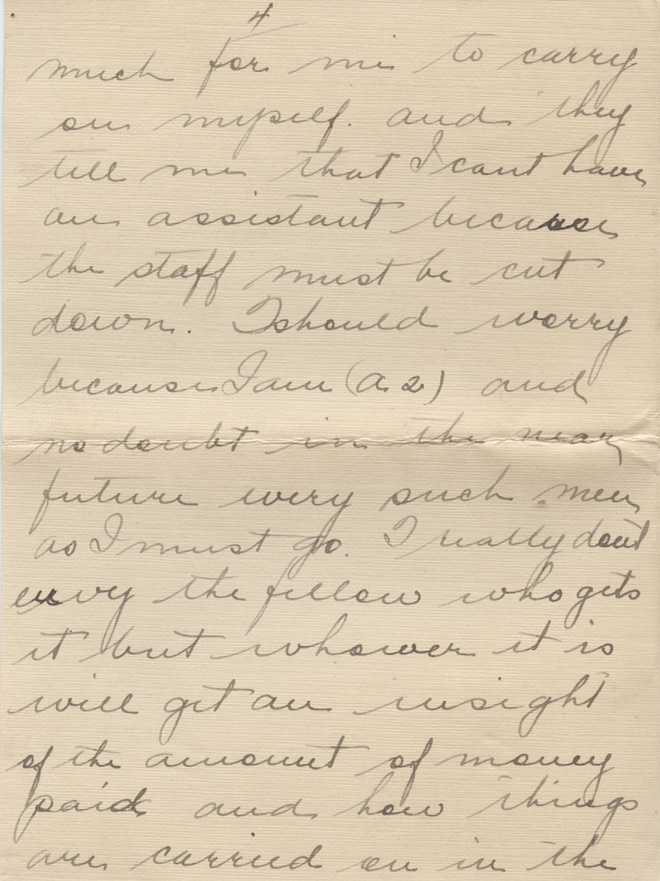 4
much for me to carry
on myself. and they
tell me that I cant have
an assistant because
the staff must be cut
down. I should worry
because I am (A2) and
no doubt in the near
future every such men
as I must go. I really dont
envy the fellow who gets
it but whoever it is
will get an insight
of the amount of money
paid and how things
are carried on in the